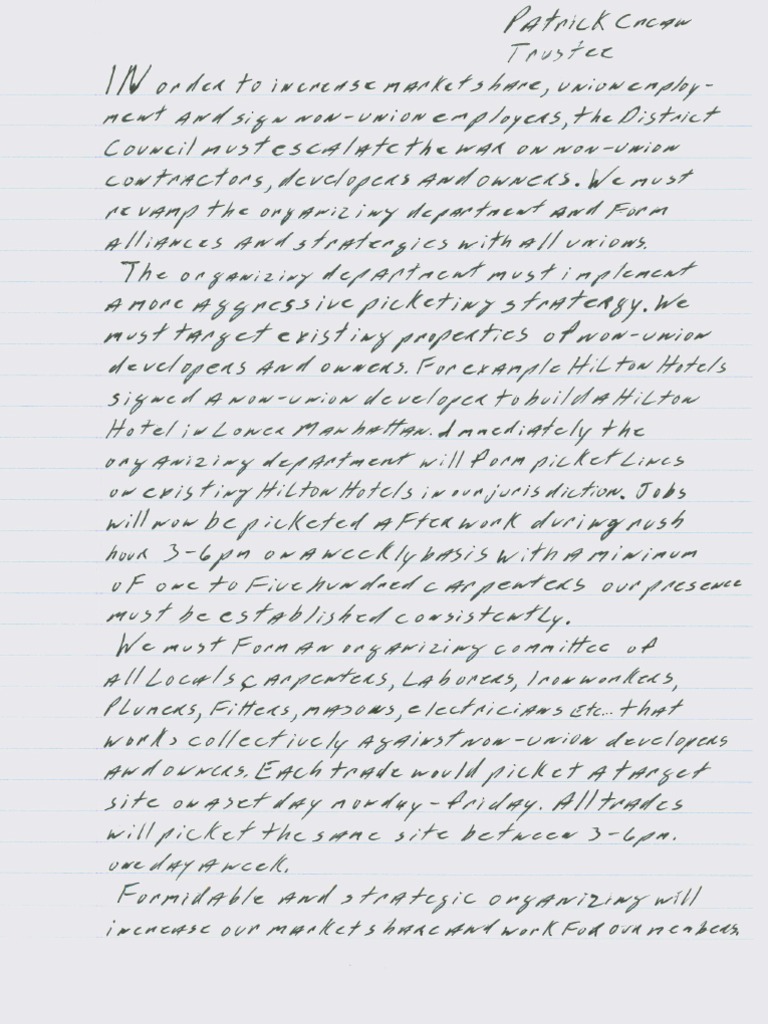 Patrick Crean
Trustee
IN order to increase market share, union employ-
ment and sign non-union employers, the District
Council must escalate the war on non-union
contractors, developers and owners. We must
revamp the organizing department and form
alliances and stratergies with all unions.
The organizing department must implement
a more aggressive picketing stratergy. We
must target existing properties of non-union
developers and owners. For example Hilton Hotels
signed a non-union developer to build a Hilton
Hotel in Lower Manhattan. Immediately the
organizing department will form picket lines
on existing Hilton Hotels in our jurisdiction. Jobs
will now be picketed after work during rush
hour 3-6 pm on a weekly basis with a minimum
of one to five hundred carpenters our presence
must be established consistently.
We must form an organizing committee of
all Locals Carpenters, Laborers, Ironworkers,
Plumers, Fitters, masons, electricians Etc... that
works collectively against non-union developers
and owners. Each trade would picket a target
site on a set day monday-friday. All trades
will picket the same site between 3-6pm.
one day a week.
Formidable and strategic organizing will
increase our market share and work for our members.